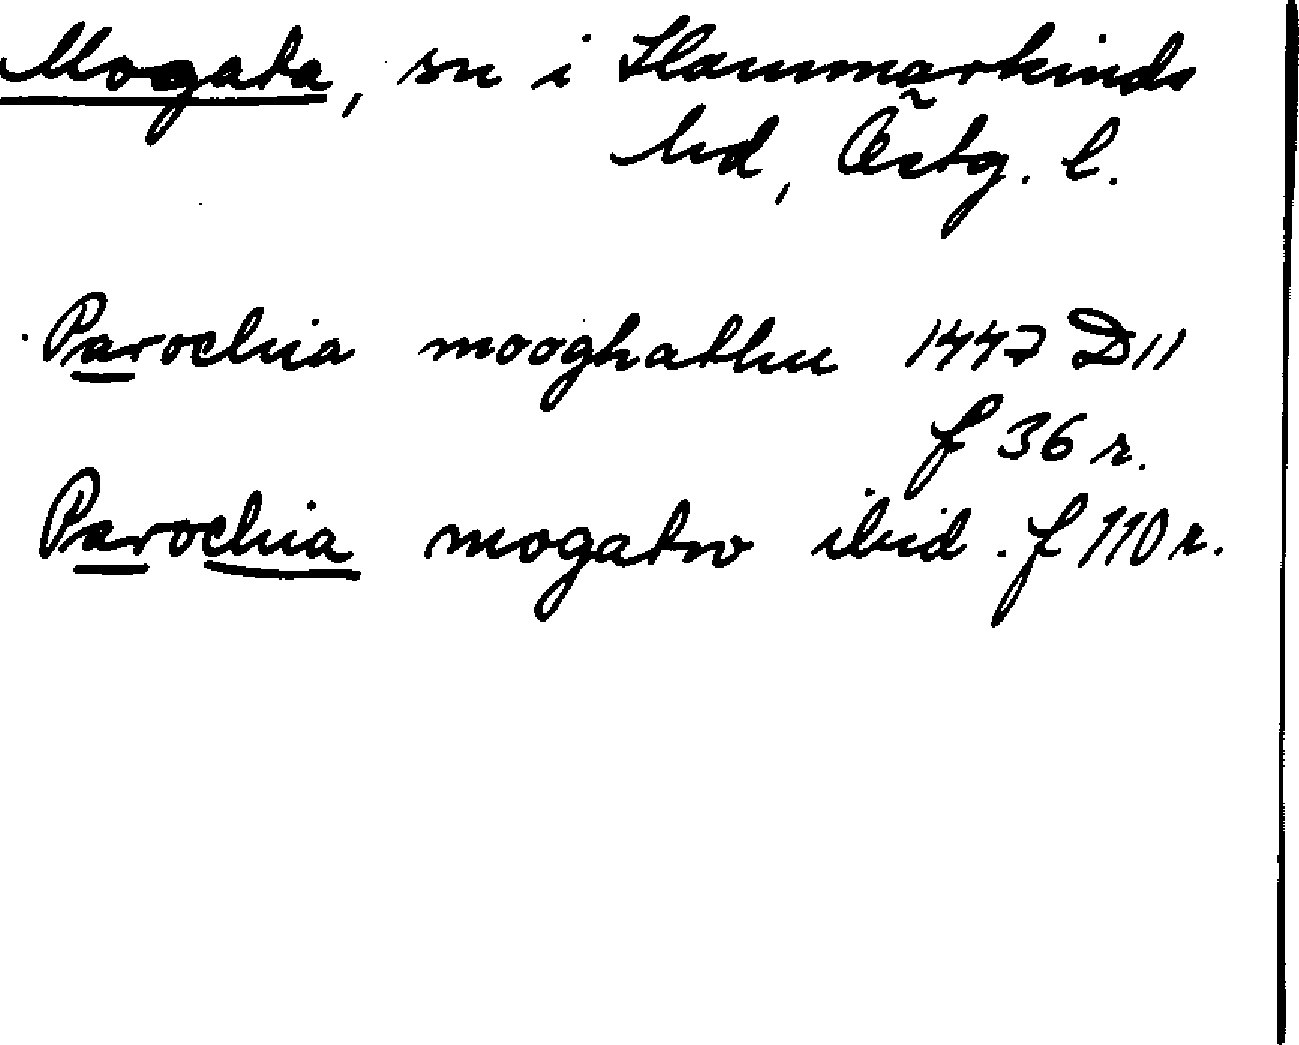 Mogata, sn i Hammarkinds
hd, Östg. l.
Parochia mooghathu 1447 D11
f 36 r.
Parochia mogatw ibid. f 110 r.